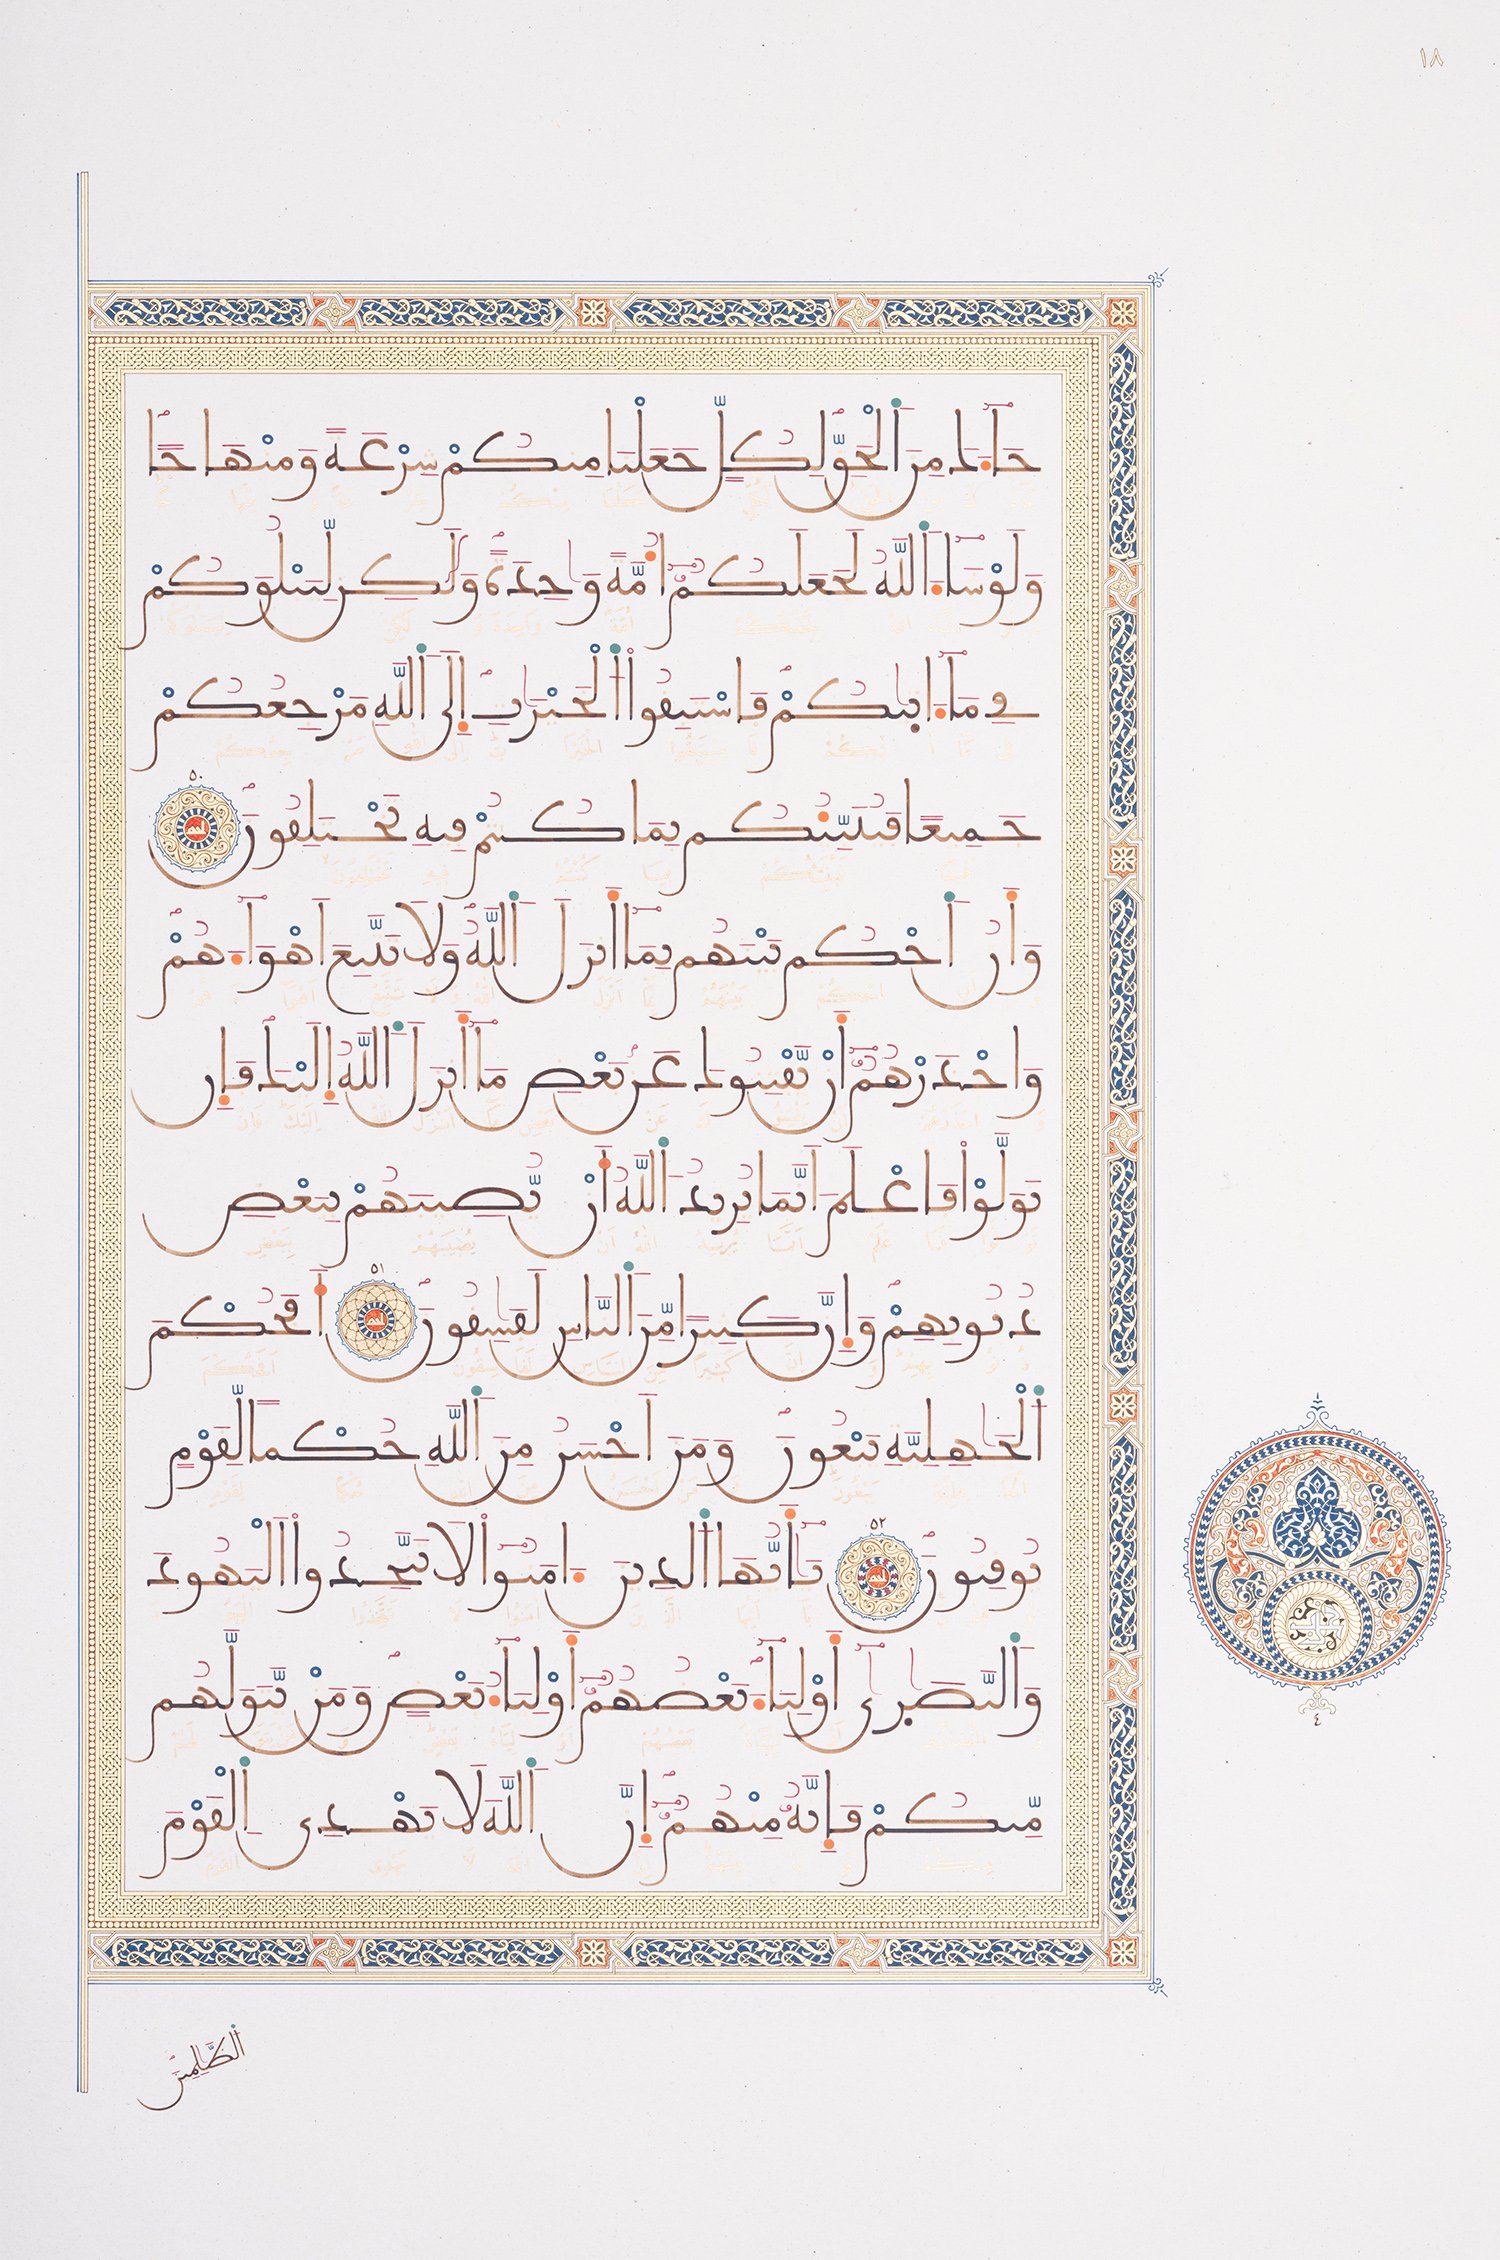 ١٨
جَآءَكَ مِنَ اَلْحَقِّ لِكُلٍّ جَعَلْنَا مِنكُمْ شِرْعَةً وَمِنْهَاجاً
وَلَوْ شَآءَ اَللَّهُ لَجَعَلَكُمُۥٓ أُمَّةً وَٰحِدَةً وَلَٰكِن لِّيَبْلُوَكُمْ
فِے مَآ ءَاتَيٰكُمْ فَاسْتَبِقُوا اُلْخَيْرَٰتِ إِلَى اَللَّهِ مَرْجِعُكُمْ
جَمِيعاً فَيُنَبِّئُكُم بِمَا كُنتُمْ فِيهِ تَخْتَلِفُونَ ٥٠
وَأَنُ اُحْكُم بَيْنَهُم بِمَآ أَنزَلَ اَللَّهُ وَلَا تَتَّبِعَ اَهْوَآءَهُمْ
وَاحْذَرْهُمُۥٓ أَنْ يَّفْتِنُوكَ عَنۢ بَعْضِ مَآ أَنزَلَ اَللَّهُ إِلَيْكَ فَإِن
تَوَلَّوْا فَاعْلَمَ اَنَّمَا يُرِيدُ اُللَّهُ أَنْ يُّصِيبَهُم بِبَعْضِ
ذُنُوبِهِمْ وَإِنَّ كَثِيراً مِّنَ اَلنَّاسِ لَفَٰسِقُونَ ٥١ أَفَحُكْمَ
اَلْجَٰهِلِيَّةِ يَبْغُونَ وَمَنَ اَحْسَنُ مِنَ اَللَّهِ حُكْماً لِّقَوْمٍ
يُوقِنُونَ ٥٢ يَٰٓأَيُّهَا اَلذِينَ ءَامَنُوا لَا تَتَّخِذُوا اُلْيَهُودَ
وَالنَّصَٰرَىٰٓ أَوْلِيَآءَ بَعْضُهُمُۥٓ أَوْلِيَآءُ بَعْضٍ وَمَنْ يَّتَوَلَّهُم
مِّنكُمْ فَإِنَّهُۥ مِنْهُمُۥٓ إِنَّ اَللَّهَ لَا يَهْدِى اِلْقَوْمَ
اَلظَّٰلِمِينَ
٤